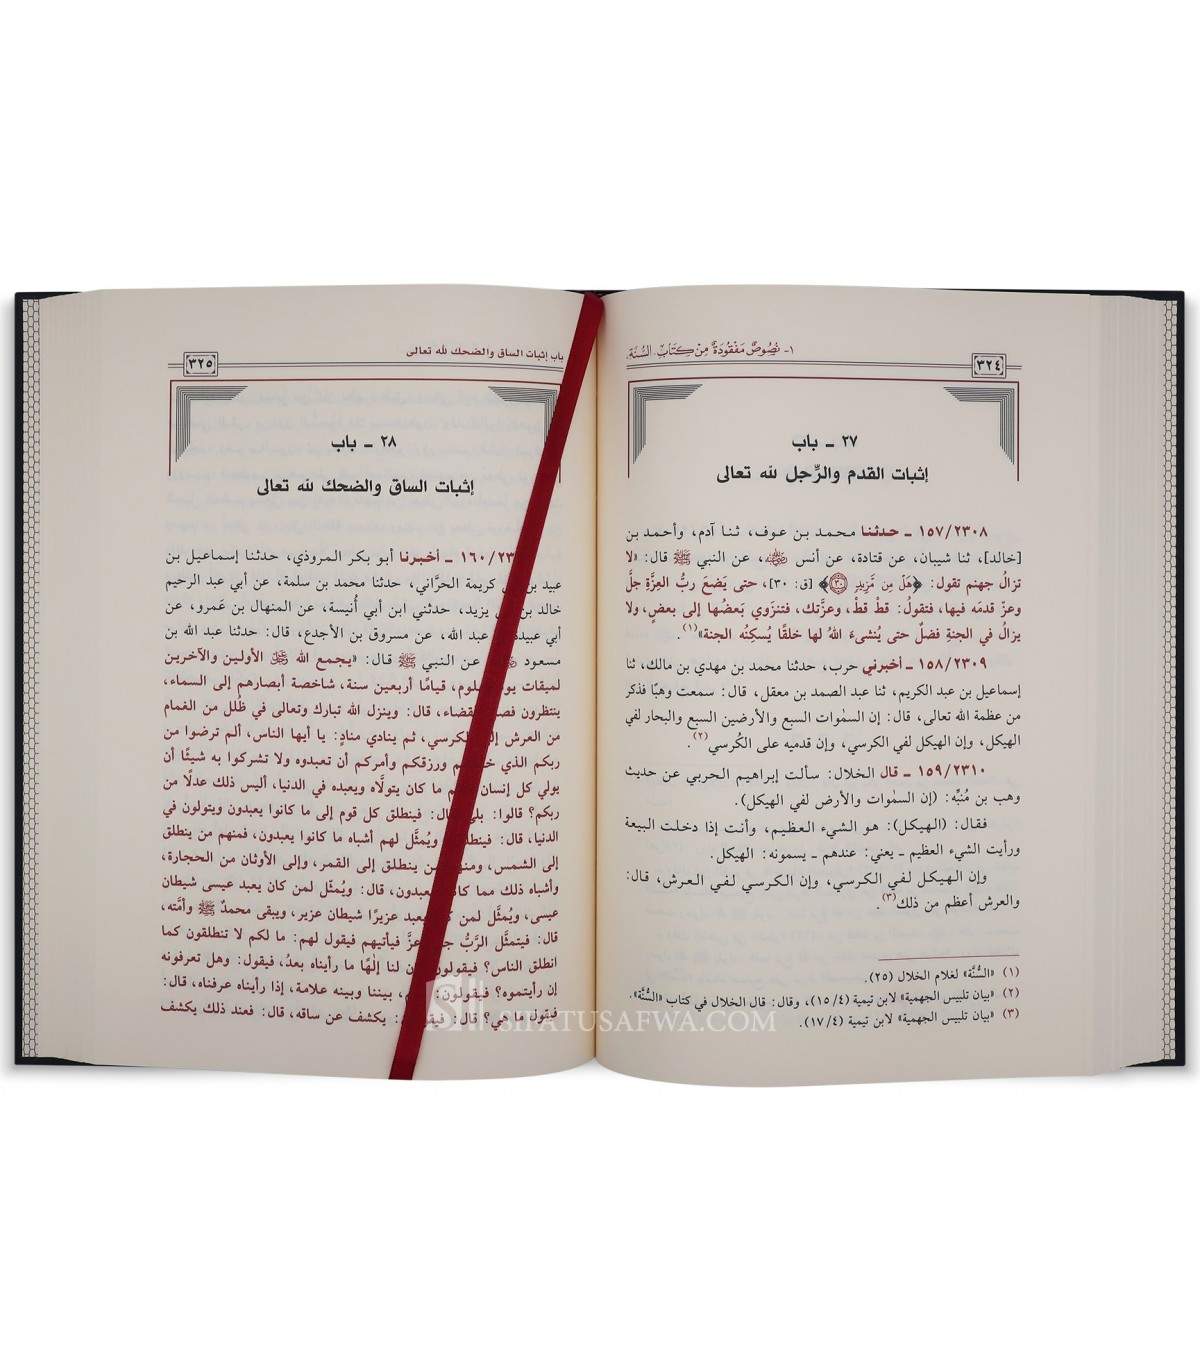 ٣٢٤
١- نُصُوصٌ مَفْقُودَةٌ مِنْ كِتَابِ «السُّنَّة»
٢٧ ـ باب
إثبات القدم والرِّجل لله تعالى
١٥٧/٢٣٠٨ ـ حدثنا محمد بن عوف، ثنا آدم، وأحمد بن
[خالد]، ثنا شيبان، عن قتادة، عن أنس ﷺ، عن النبي ﷺ قال: «لا
تزالُ جهنم تقول: ﴿هَلْ مِن مَّزِيدٍ ٣٠﴾ [ق: ٣٠]، حتى يَضعَ ربُّ العِزَّةِ جلَّ
وعزّ قدمَه فيها، فتقولُ: قطْ قطْ، وعزَّتك، فتنزَوي بَعضُها إلى بعضٍ، ولا
يزالُ في الجنةِ فضلٌ حتى يُنشىءَ اللهُ لها خلقًا يُسكِنُه الجنة»(١).
١٥٨/٢٣٠٩ ـ أخبرني حرب، حدثنا محمد بن مهدي بن مالك، ثنا
إسماعيل بن عبد الكريم، ثنا عبد الصمد بن معقل، قال: سمعت وهبًا فذكر
من عظمة الله تعالى، قال: إن السمٰوات السبع والأرضين السبع والبحار لفي
الهيكل، وإن الهيكل لفي الكرسي، وإن قدميه على الكُرسي(٢).
١٥٩/٢٣١٠ ـ قال الخلال: سألت إبراهيم الحربي عن حديث
وهب بن مُنبِّه: (إن السمٰوات والأرض لفي الهيكل).
فقال: (الهيكل): هو الشيء العظيم، وأنت إذا دخلت البيعة
ورأيت الشيء العظيم ـ يعني: عندهم ـ يسمونه: الهيكل.
وإن الهيكل لفي الكرسي، وإن الكرسي لفي العرش، قال:
والعرش أعظم من ذلك(٣).
(١) «السُّنَّة» لغلام الخلال (٢٥).
(٢) «بيان تلبيس الجهمية» لابن تيمية (١٥/٤)، وقال: قال الخلال في كتاب «السُّنَّة».
(٣) «بيان تلبيس الجهمية» لابن تيمية (١٧/٤).
باب إثبات الساق والضحك لله تعالى
٣٢٥
٢٨ ـ باب
إثبات الساق والضحك لله تعالى
١٦٠/ ـ أخبرنا أبو بكر المروذي، حدثنا إسماعيل بن
عبيد بن كريمة الحرَّاني، حدثنا محمد بن سلمة، عن أبي عبد الرحيم
خالد بن يزيد، حدثني ابن أبي أُنيسة، عن المنهال بن عَمرو، عن
أبي عبيدة عبد الله، عن مسروق بن الأجدع، قال: حدثنا عبد الله بن
مسعود عن النبي ﷺ قال: «يجمع الله الأولين والآخرين
لميقات يوم قيامًا أربعين سنة، شاخصة أبصارهم إلى السماء،
ينتظرون فصل القضاء، قال: وينزل الله تبارك وتعالى في ظُلل من الغمام
من العرش إلى الكرسي، ثم ينادي منادٍ: يا أيها الناس، ألم ترضوا من
ربكم الذي ورزقكم وأمركم أن تعبدوه ولا تشركوا به شيئًا أن
يولي كل إنسان ما كان يتولَّاه ويعبده في الدنيا، أليس ذلك عدلًا من
ربكم؟ قالوا: بلى قال: فينطلق كل قوم إلى ما كانوا يعبدون ويتولون في
الدنيا، قال: ويُمثَّل لهم أشباه ما كانوا يعبدون، فمنهم من ينطلق
إلى الشمس، من ينطلق إلى القمر، وإلى الأوثان من الحجارة،
وأشباه ذلك مما يعبدون، قال: ويُمثّل لمن كان يعبد عيسى شيطان
عيسى، ويُمثّل لمن يعبد عزيرًا شيطان عزير، ويبقى محمدٌ ﷺ وأمَّته،
قال: فيتمثَّل الرَّبُّ وعزَّ فيأتيهم فيقول لهم: ما لكم لا تنطلقون كما
انطلق الناس؟ فيقولون: لنا إلٰهًا ما رأيناه بعدُ، فيقول: وهل تعرفونه
إن رأيتموه؟ فيقولون: بيننا وبينه علامة، إذا رأيناه عرفناه، قال:
فيقول ما هي؟ قال: يكشف عن ساقه، قال: فعند ذلك يكشف
SIFATUSAFWA.COM